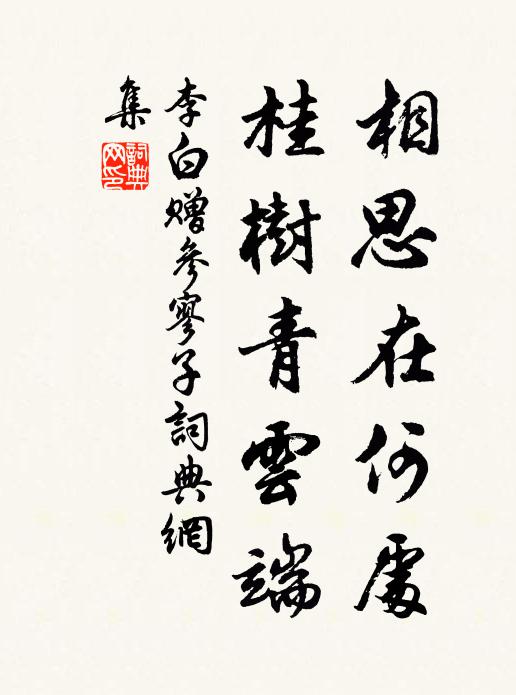 相思在何處
桂樹青雲端
李白贈參寥子詞典網
集
詞典網印